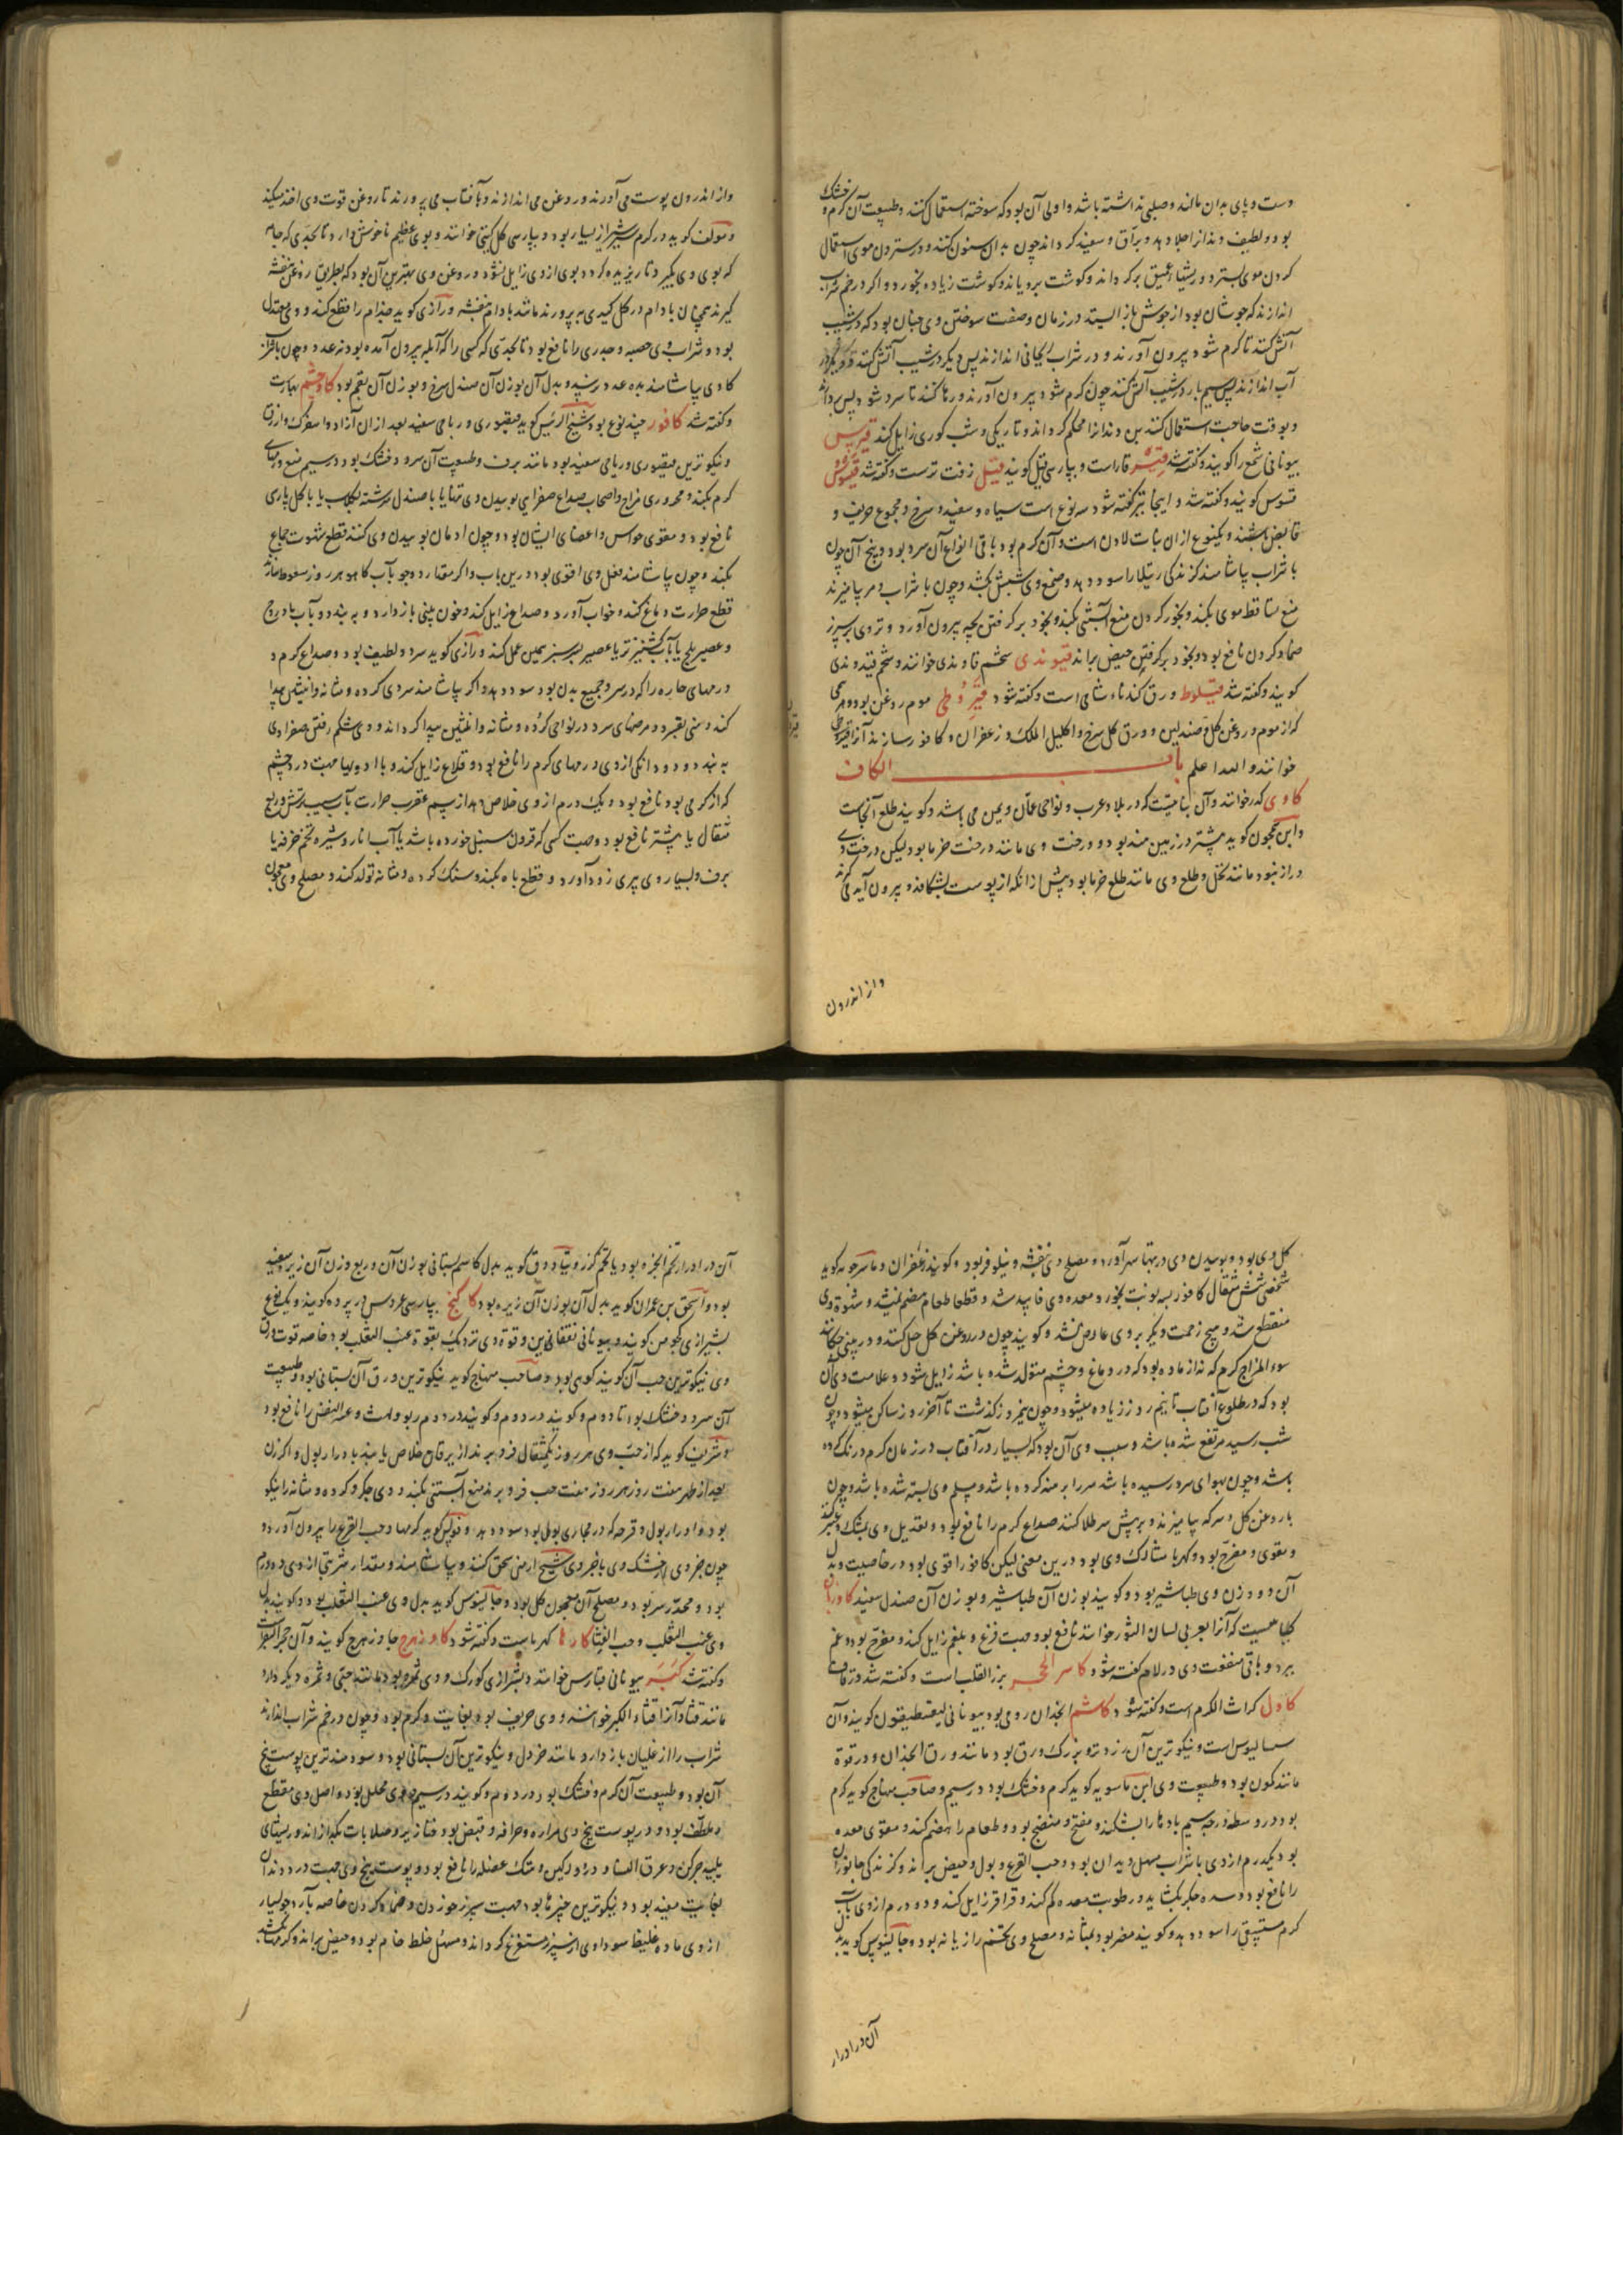 دست و پای بدان مالند وصلبی نداشته باشد و اولی آن بود که سوخته استعمال کنند و طبیعت آن کرم و خشک
بود و لطیف و دندانرا جلا دهد و براق و سفید کرداند چون بدان سنون کنند و در ستردن موی استعمال
کردن موی بسترد و ریشهاء عمیق پر کرداند و کوشت برویاند و کوشت زیاده بخورد و اکر در خم شراب
اندازند که جوشان بود از جوش باز ایستد در زمان و صفت سوختن وی چنان بود که در شیب
آتش کنند تا کرم شود بیرون آورند و در شراب ریحانی اندازند پس دیکر در شیب آتش کنند و دیکر در
آب اندازند پس سیم بار در شیب آتش کنند چون کرم شود بیرون آورند و رها کنند تا سرد شود پس بردارند
و بوقت حاجت استعمال کنند بن دندانرا محکم کرداند و تاریکی و شب کوری زایل کند قیرس
بیونانی شمع را کویند و کفته شد قیر قاراست و بپارسی قیل کویند قیل زفت ترست و کفته شد قیسوس
قسوس کویند و کفته شد و اینجا نیز کفته شود سه نوع است سیاه و سفید و سرخ و مجموع حریف و
قابض باشند و یکنوع از ان نبات لادن است و آن کرم بود باقی انواع آن سرد بود و بیخ آن چون
با شراب بیاشامند کزندکی رتیلا را سود دهد و صمغ وی شپش بکشد و چون با شراب و مر بیامیزند
منع تساقط موی بکند و بخور کردن منع آبستنی بکند و بخود بر کرفتن بچه بیرون آورد و تر وی بر سپرز
ضماد کردن نافع بود و بخود بر کرفتن حیض براند قیوندی شحم قاوندی خوانند و شحم قیندوندی
کویند و کفته شد قیلوط ورق کندناء شامی است و کفته شود قیروطی موم روغن بود و هرچه
که از موم و روغن کل و صندلین و ورق کل سرخ و اکلیل الملک و زعفران و کافور سازند آنرا قیروطی
خوانند و الله اعلم باب الکاف
کاوی کدر خوانند و آن نباتیست که در بلاد عرب و نواحی عمان و یمن می باشد و کویند طلع آنجاست
و ابن عجون کوید بیشتر در زمین هند بود و درخت وی مانند درخت خرما بود لیکن درخت وی
دراز نبود مانند نخل و طلع وی مانند طلع خرما بود پیش از انکه از پوست بشکافد و بیرون آید می کیرند
و از اندرون
و از اندرون پوست می آورند و در روغن می اندازند و بآفتاب می پرورند تا روغن قوت وی اخذ میکند
و مولف کوید در کرم سیر شیراز بسیار بود و بپارسی کل کیتی خوانند و بوی عظیم ناخوش دارد تا بحدی که جامه
که بوی وی بکیرد تا ریزیده کردد بوی از وی زایل نشود و روغن وی بهترین آن بود که بطریق روغن بنفشه
کیرند همچنان بادام در کل کیدی بپرورند مانند بادام بنفشه و رازی کوید جذام را قطع کند و وی معتدل
بود و شراب وی حصبه و جدری را نافع بود تا بحدی که کسی را که آبله بیرون آمده بود نه عدد و چون با قراز
کادی بیاشامند بده عدد نرسید و بدل آن بوزن آن صندل سرخ و بوزن آن بقم بود کاوچشم بهارست
و کفته شد کافور چند نوع بود شیخ الرئیس کوید قیصوری و رباحی سفید بعد از ان آزاد و اسفرک و ازرق
و نیکوترین قیصوری و رباحی سفید بود مانند برف و طبیعت آن سرد و خشک بود در سیم منع ورمهای
کرم بکند و محروری مزاج و اصحاب صداع صفراوی بوییدن وی تنها یا با صندل سرشته بکلاب یا با کل پارسی
نافع بود و مقوی حواس و اعضای ایشان بود و چون ادمان بوییدن وی کنند قطع شهوت جماع
بکند و چون بیاشامند فعل وی اقوی بود درین باب و اکر مقدار دو جو بآب کاهو هر روز سعوط سازند
قطع حرارت دماغ کند و خواب آورد و صداع زایل کند و خون بینی باز دارد و ببندد و بآب بادروج
و عصیر بلح یا بآب کشنیز تر یا عصیر بسر سبز همین عمل کند و رازی کوید سرد و لطیف بود و صداع کرم و
ورمهای حاره را که در سر و جمیع بدن بود سود دهد و اکر بیاشامند سردی کرده و مثانه و انثیین پیدا
کند و منی بفسرد و مرضهای سرد در نواحی کرده و مثانه و انثیین پیدا کرداند و وی شکم رفتن صفراوی
به بندد و دو دانکی از وی ورمهای کرم را نافع بود و قلاع زایل کند و با ادویها جهت درد چشم
که از کرمی بود نافع بود و یک درم از وی خلاص دهد از سم عقرب حرارت بآب سیب ترش و ربع
مثقال یا بیشتر نافع بود و جهت کسی که قرون سنبل خورده باشد یا آب انار و شیره تخم خرفه یا
برف و بسیار وی پیری زود آورد و قطع باه بکند و سنک کرده و مثانه تولد کند و مصلح وی معجون
کل وی بود و بوییدن وی در تبها سهر آورد و مصلح وی بنفشه و نیلوفر بود و کویند زعفران و ماسرجویه کوید
شخصی شش مثقال کافور بسه نوبت بخورد و معده وی فاسد شد و قطعا طعام هضم نمیشد و شهوة وی
منقطع شد و هیچ زحمت دیکر بر وی عارض نشد و کویند چون در روغن کل حل کنند و در بینی چکانند
سوء المزاج کرم که نه از ماده بود که در دماغ و چشم متولد شده باشد زایل شود و علامت وی آن
بود که در طلوع آفتاب تا نیم روز زیاده میشود و چون نیمروز بکذشت تا آخر روز ساکن میشود و چون
شب رسید مرتفع شده باشد و سبب وی آن بود که بسیار در آفتاب در زمان کرم درنک کرده
باشد و چون بهوای سرد رسیده باشد سر را برهنه کرده باشد و مسام وی بسته شده باشد و چون
با روغن کل و سرکه بیامیزند و بر پیش سر طلا کنند صداع کرم را نافع بود و تعدیل وی بمشک و عنبر کنند
و مقوی و مفرح بود و کهربا مشارک وی بود درین معنی لیکن کافور اقوی بود در خاصیت و بدل
آن دو وزن وی طباشیر بود و کویند بوزن آن طباشیر و بوزن آن صندل سفید کاوزبان
کیاهیست که آنرا بعربی لسان الثور خوانند نافع بود جهت فزع و بلغم زایل کند و مفرح بود و غم
ببرد و باقی منفعت وی در لام کفته شود کاسر الحجر بزر القلب است و کفته شد در قاف
کاول کراث الکرم است و کفته شود کاشم انجدان رومی بود بیونانی لیغسطیقون کویند و آن
سسالیوس است و نیکوترین آن زرد تر و بزرک ورق بود مانند ورق انجدان و در قوة
مانند کمون بود و طبیعت وی ابن ماسویه کوید کرم و خشک بود در سیم و صاحب منهاج کوید کرم
بود در وسط درجه سیم بادها را بشکند و مفتح و منضج بود و طعام را هضم کند و مقوی معده
بود یکدرم از وی با شراب مسهل دیدان بود و حب القرع و بول و حیض براند و کزندکی جانوران
را نافع بود و سده جکر بکشاید و رطوبت معده کم کند و قراقر زایل کند و دو درم از وی بآب
کرم مستسقی را سود دهد و کویند مضر بود بمثانه و مصلح وی تخم رازیانه بود و جالینوس کوید بدل
آن در ادرار
آن در ادرار تخم الجزر بود یا تخم کزر و بیادوق کوید بدل کاشم بستانی بوزن آن و ربع وزن آن زیره سفید
بود و اسحق بن عمران کوید بدل آن بوزن آن زیره بود کاکنج بپارسی عروس در پرده کویند و یک نوع
بشیرازی کچومن کویند و بیونانی نفقافین و قوة وی نزدیک بقوة عنب الثعلب بود خاصه قوت ورق
وی نیکوترین حب آن کویند کوهی بود و صاحب منهاج کوید نیکوترین ورق آن بستانی بود و طبیعت
آن سرد و خشک بود تا دوم و کویند در دوم و کویند در دوم ربو و لهث و عسر النفس را نافع بود
و شریف کوید که از حب وی هر روز یکمثقال فرو برند از یرقان خلاص یابند بادرار بول و اکر زن
بعد از طهر هفت روز هر روز هفت حب فرو برد منع آبستنی بکند و وی جکر و کرده و مثانه را نیکو
بود و ادرار بول و قرحه که در مجاری بول بود سود دهد و فولس کوید کرمها و حب القرع را بیرون آورد
چون جزوی از خشک وی با جزوی شیح ارمنی سحق کنند و بیاشامند و مقدار شربتی از وی دو درم
بود و مخدر سر بود و مصلح آن معجون کل بود و جالینوس کوید بدل وی عنب الثعلب بود و کویند بدل
وی عنب الثعلب و حب القثا کارها کهرباست و کفته شود کاوزهرج جاوزهرج کویند و آن حجر البقر است
و کفته شد کبر بیونانی قبارس خوانند و بشیرازی کورک و وی ثمره بود مانند حبتی و ثمره دیکر دارد
مانند قثا و آنرا قثاء الکبر خوانند و وی حریف بود بغایت و کرم بود و چون در خم شراب اندازند
شراب را از غلیان باز دارد مانند خردل و نیکوترین آن بستانی بود و سودمندترین پوست بیخ
آن بود و طبیعت آن کرم و خشک بود در دوم و کویند در سیم و وی محلل بود و اصل وی مقطع
و ملطف بود و در پوست بیخ وی مراره و حرافه و قبض بود و خنازیر و صلابات بکدازاند و ریشهای
پلید چرکن و عرق النسا و درد ورکین و هتک عضله را نافع بود و پوست بیخ وی جهت درد دندان
بغایت مفید بود و نیکوترین چیزها بود جهت سپرز خوردن و ضماد کردن خاصه بآرد جو بسیار
از وی ماده غلیظ سوداوی از سپرز مستفرغ کرداند و مسهل خلط خام بود و حیض براند و کرمها بکشد